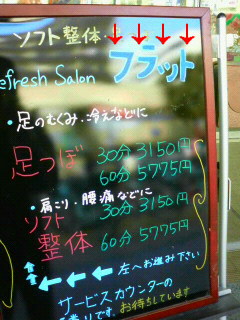 ソフト整体
フラット
efresh Salon
・足のむくみ・冷えなどに
足つぼ 30分 3150円
60分 5775円
・肩こり・腰痛などに
ソフト 30分 3150円
整体 60分 5775円
左へお進み下さい
サービスカウンターの
です。お待ちしています